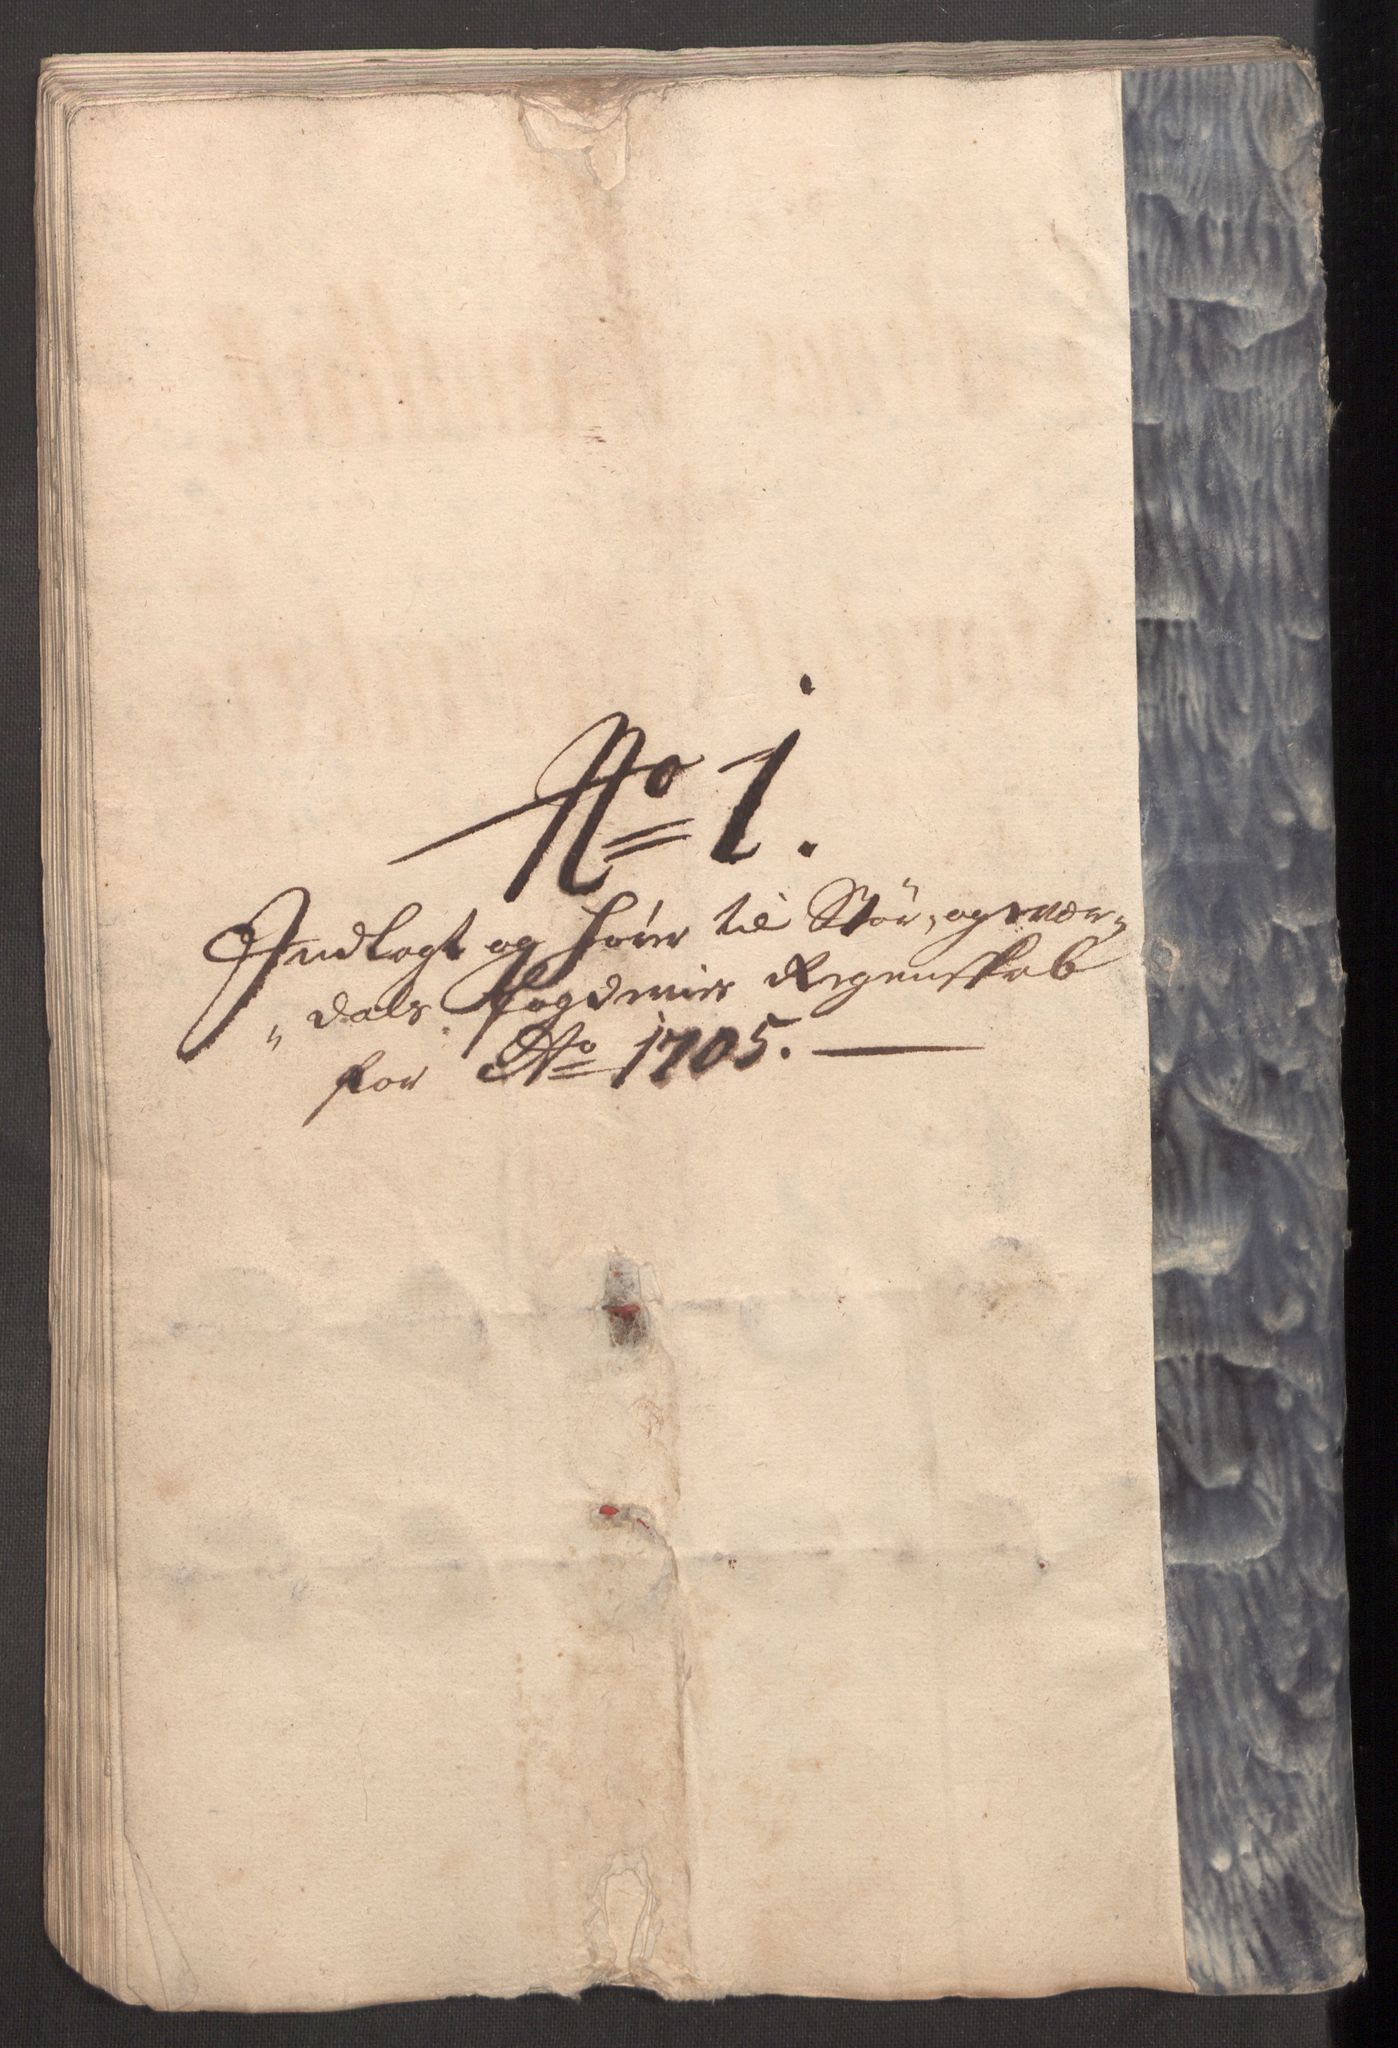 No 1.
Indlagt og hører til Stør, og wær„
„dals fogderies Regenskab
for Ao 1705.